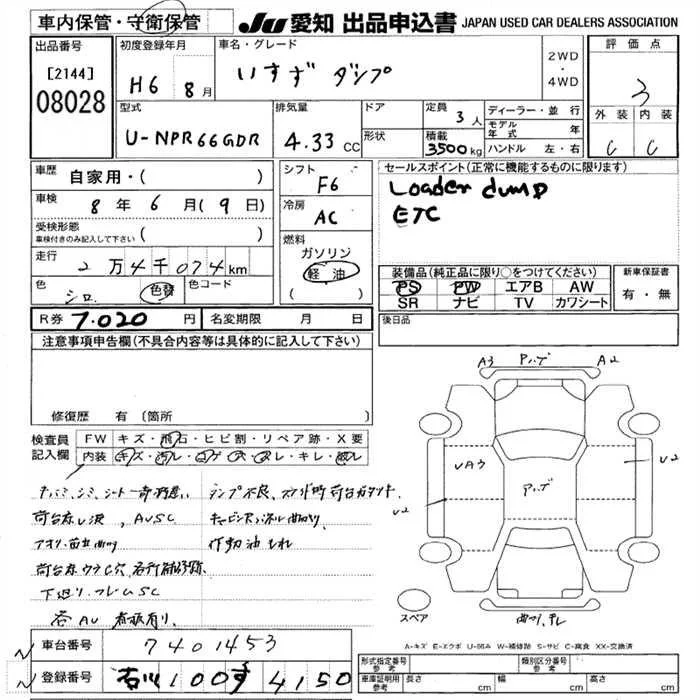 車内保管・守衛保管
JU 愛知 出品申込書 JAPAN USED CAR DEALERS ASSOCIATION
出品番号
[2144]
08028
初度登録年月
H6 8月
車名・グレード
いすず ダンプ
2WD
・
4WD
評価点
3
外装 内装
C C
型式
U-NPR66GDR
排気量
4.33 CC
ドア
形状
定員 3人
積載 3500kg
ディーラー・並行
モデル年式 年
ハンドル 左・右
車歴 自家用・( )
車検 8年6月(9日)
受検形態
車検付きのみ記入して下さい ( )
走行 2万4千074km
色 シロ 色替 色コード
シフト
F6
冷房
AC
燃料
ガソリン
軽油
( )
セールスポイント(正常に機能するものに限ります)
Loader dump
ETC
装備品(純正品に限り○をつけてください)
PS PW エアB AW
SR ナビ TV カワシート
新車保証書
有・無
R券 7.020 円 名変期限 月 日
後日品
注意事項申告欄(不具合内容等は具体的に記入して下さい)
修復歴 有(箇所
検査員記入欄
FW キズ・飛石・ヒビ割・リペア跡・X要
内装 キズ・汚レ・コゲ・ ・キレ・
荷台
作動油もれ
下廻り・フレームSC
各AU 看板有り、
A3 アハブ A2
UA3 アハブ U2
U2
スペア
曲り、テレ
A-キズ E-エクボ U-凹み W-補修跡 S-サビ C-腐食 XX-交換済
車台番号 7401453
登録番号 石川100す4150
形式指定番号 参考
類別区分番号 参考
車庫証明用 参考 長さ cm 幅 cm 高さ cm